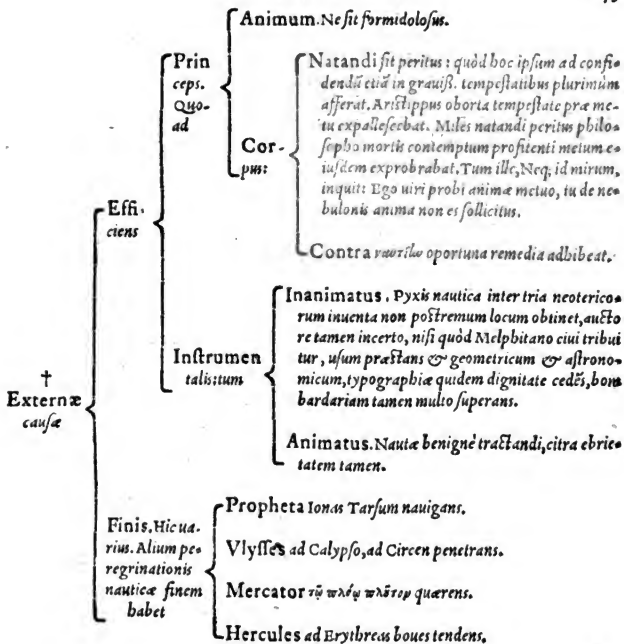 Animum. Ne sit formidolosus.
Prin
ceps.
Quo-
ad
Cor-
pus:
Natandi sit peritus: quòd hoc ipsum ad confi-
dendũ etiã in grauiß. tempestatibus plurimùm
afferat. Aristippus oborta tempestate præ me-
tu expallescebat. Miles natandi peritus philo-
sopho mortis contemptum profitenti metum e-
iusdem exprobrabat. Tum ille, Neq; id mirum,
inquit: Ego uiri probi animæ metuo, tu de ne-
bulonis anima non es sollicitus.
Contra oportuna remedia adhibeat.
Effi-
ciens
Instrumen
talis: tum
Inanimatus. Pyxis nautica inter tria neoterico-
rum inuenta non postremum locum obtinet, aucto
re tamen incerto, nisi quòd Melphitano ciui tribui
tur, usum præstans & geometricum & astrono-
micum, typographiæ quidem dignitate cedẽs, bom
bardariam tamen multo superans.
Animatus. Nautæ benignè tractandi, citra ebrie-
tatem tamen.
†
Externæ
causæ
Finis. Hic ua-
rius. Alium pe-
regrinationis
nauticæ finem
habet
Propheta Ionas Tarsum nauigans.
Vlysses ad Calypso, ad Circen penetrans.
Mercator τῷ πλόῳ πλῦτομ quærens.
Hercules ad Erythreas boues tendens.